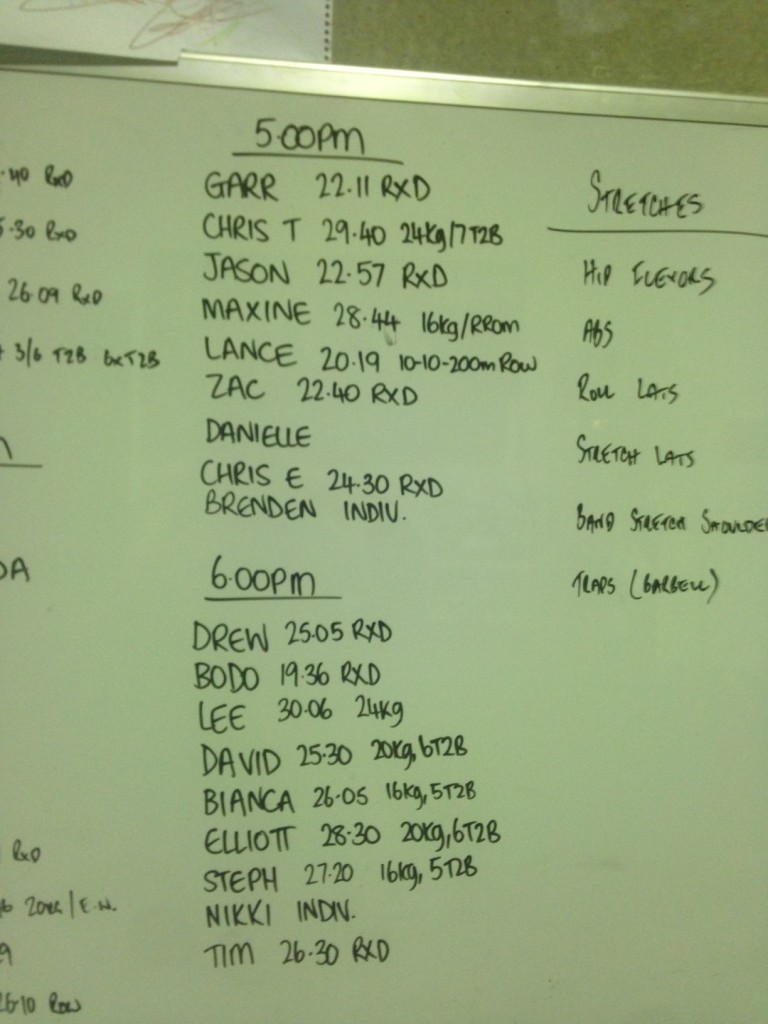 .40 RxD
5.30 RxD
26.09 RxD
3/6 T2B 6xT2B
DA
RxD
20KG/E.N.
26.10 ROW
5.00pm
GARR 22.11 RXD
CHRIS T 29.40 24kg/7T2B
JASON 22.57 RXD
MAXINE 28.44 16kg/RROM
LANCE 20.19 10-10-200m ROW
ZAC 22.40 RXD
DANIELLE
CHRIS E 24.30 RXD
BRENDEN INDIV.
6.00pm
DREW 25.05 RXD
BODO 19.36 RXD
LEE 30.06 24kg
DAVID 25.30 20kg, 6T2B
BIANCA 26.05 16kg, 5T2B
ELLIOTT 28.30 20kg, 6T2B
STEPH 27.20 16kg, 5T2B
NIKKI INDIV.
TIM 26.30 RXD
STRETCHES
HIP FLEXORS
ABS
ROLL LATS
STRETCH LATS
BAND STRETCH SHOULDER
TRAPS (BARBELL)